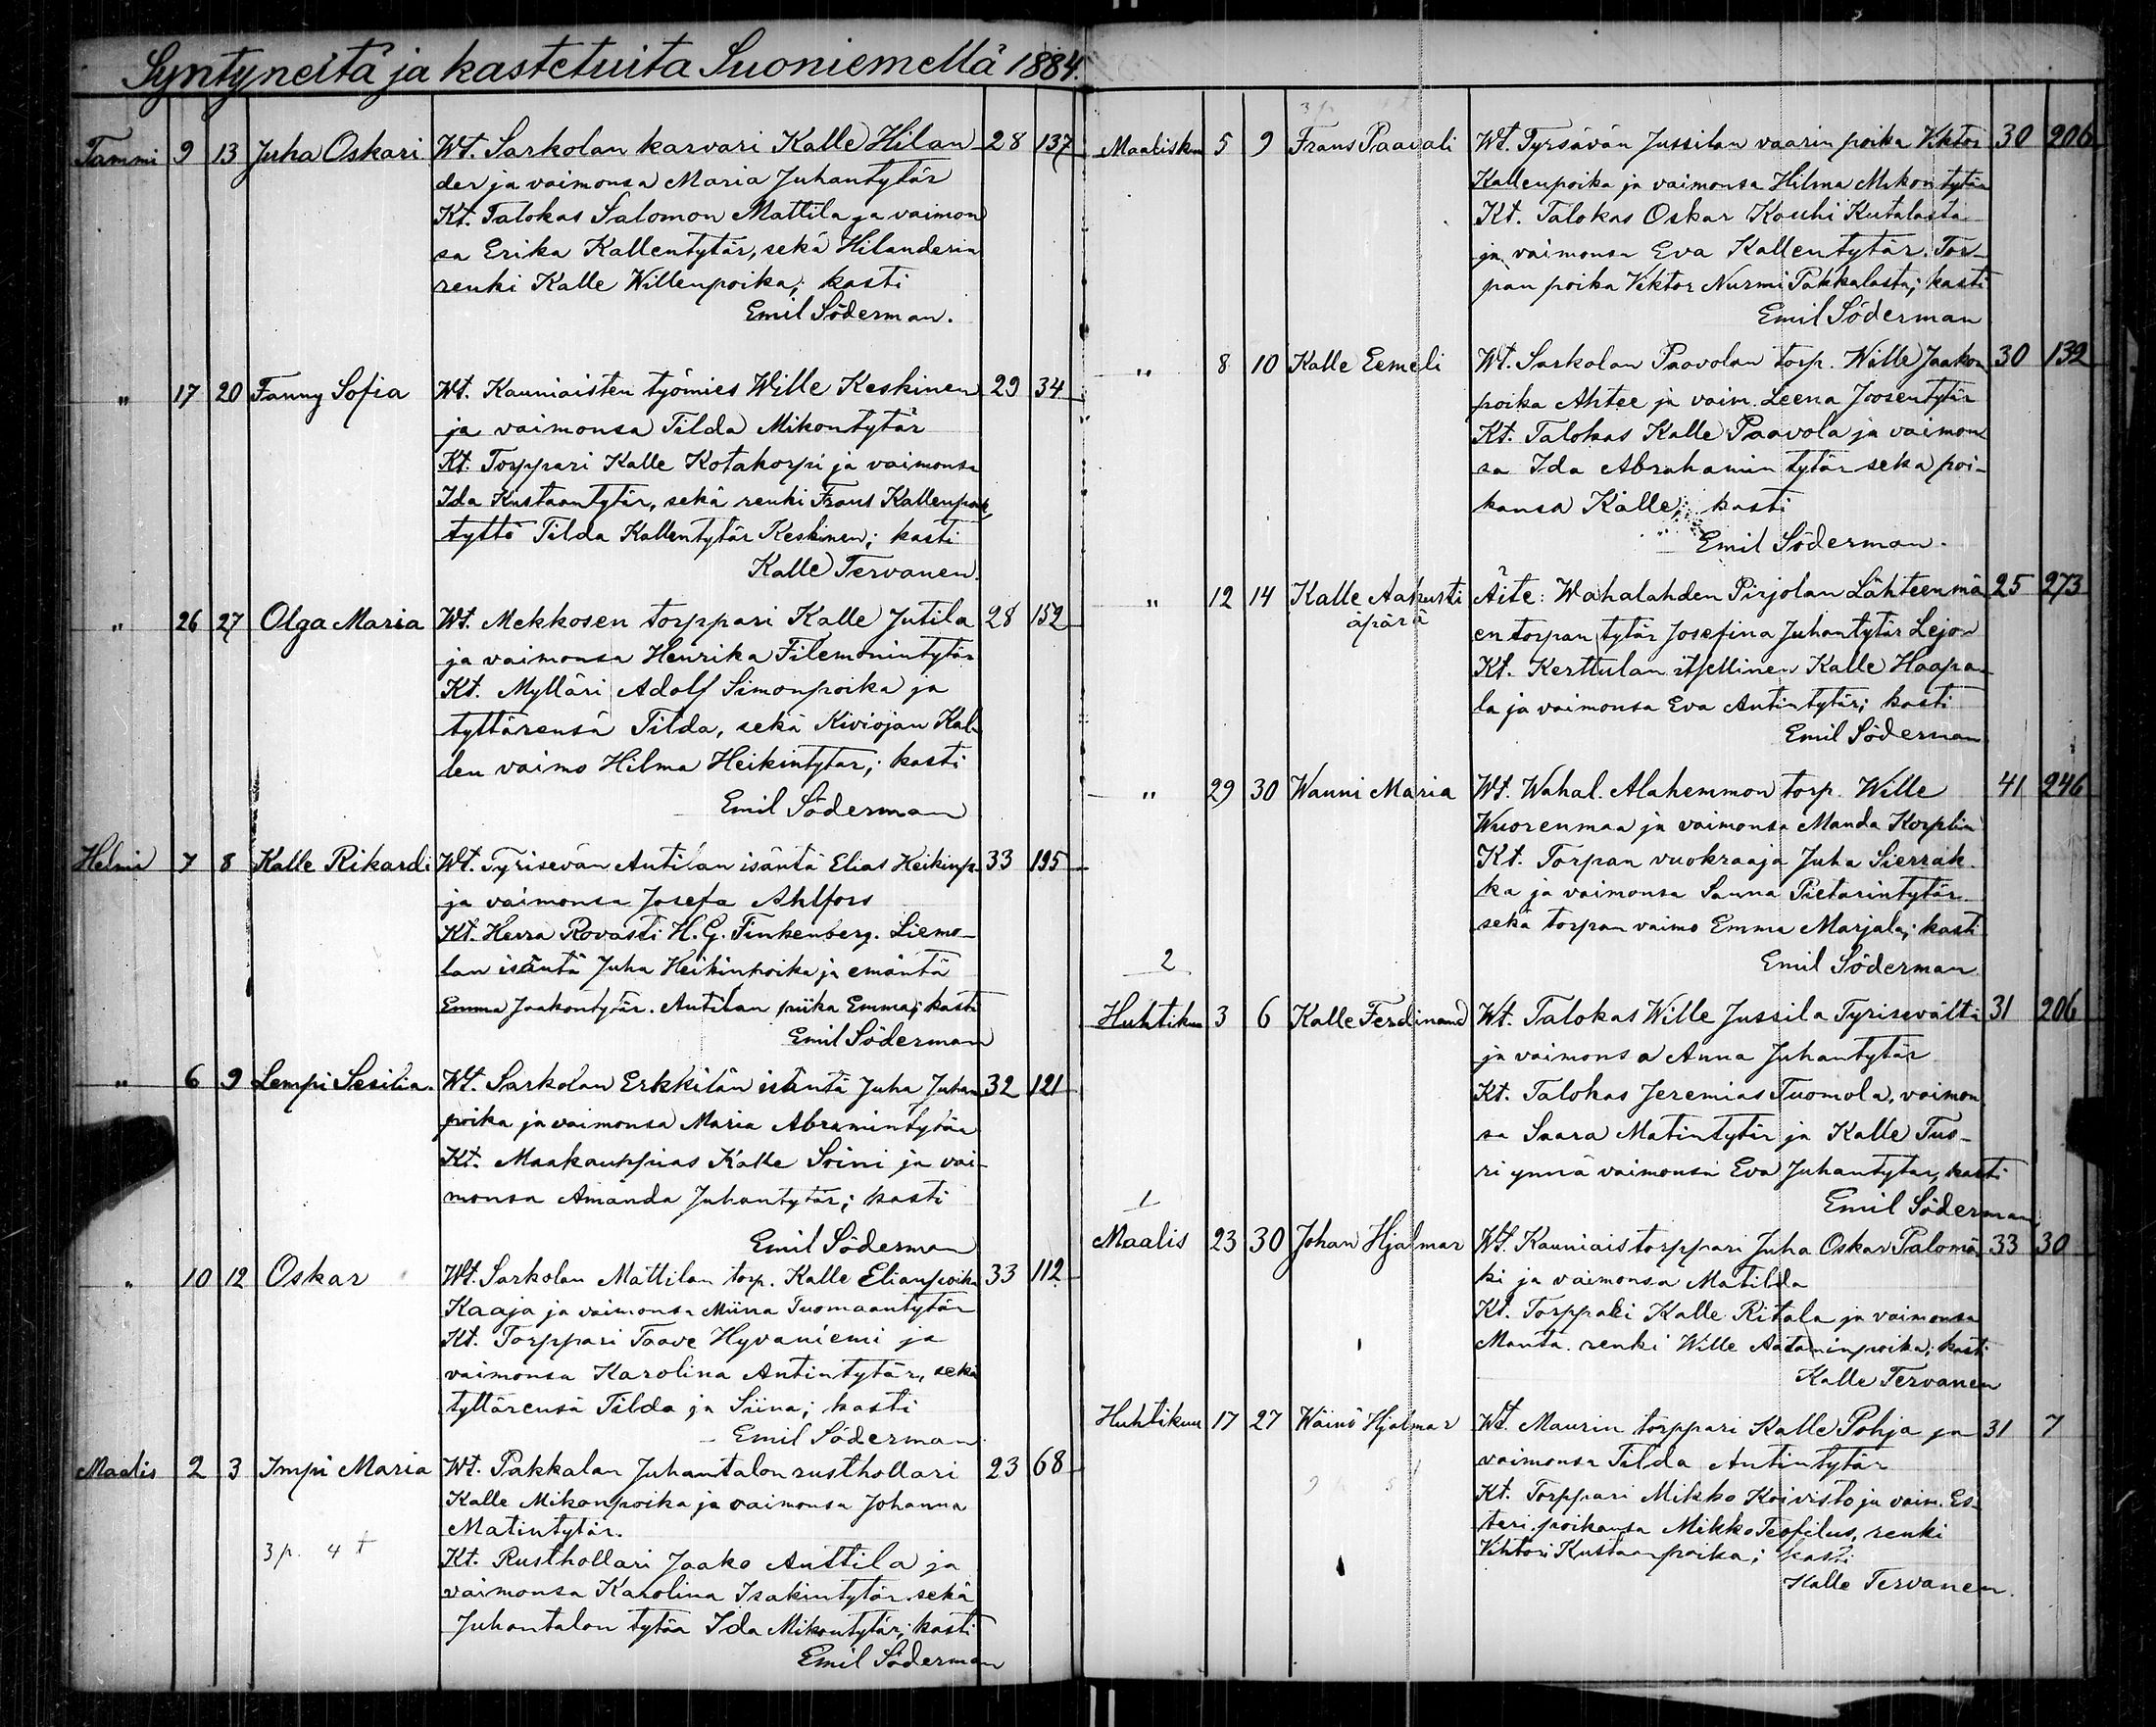 Syntyneitä ja kastetuita Suoniemellä 1884.
Tammi 9 13 Juha Oskari Wt. Sarkolan karvari Kalle Hilan- 28 137
der ja vaimonsa Maria Juhantytär
Kt. Talokas Salomon Mattila ja vaimon
sa Erika Kallentytär, sekä Hilanderin
renki Kalle Willenpoika; kasti
Emil Söderman.
" 17 20 Fanny Sofia Wt. Kauniaisten työmies Wille Keskinen 29 34
ja vaimonsa Tilda Mikontytär
Kt. Torppari Kalle Kotakorpi ja vaimonsa
Ida Kustaantytär, sekä renki Frans Kallenpoik,
tyttö Tilda Kallentytär Keskinen; kasti
Kalle Tervanen.
" 26 27 Olga Maria Wt. Mekkosen torppari Kalle Jutila 28 152
ja vaimonsa Henrika Filemonintytär
Kt. Mylläri Adolf Simonpoika ja
tyttärensä Tilda, sekä Kiviojan Kal-
len vaimo Hilma Heikintytär; kasti
Emil Söderman
Helmi 7 8 Kalle Rikardi Wt. Tyrisevän Antilan isäntä Elias Heikinp. 33 195
ja vaimonsa Josefa Ahlfors
Kt. Herra Rovasti H. G. Finkenberg. Liemo-
lan isäntä Juha Heikinpoika ja emäntä
Emma Jaakontytär. Antilan piika Emma; kasti
Emil Söderman
" 6 9 Lempi Sesilia. Wt. Sarkolan Erkkilän isäntä Juha Juhan 32 121
poika ja vaimonsa Maria Abramintytär
Kt. Maakauppias Kalle Soini ja vai-
monsa Amanda Juhantytär; kasti
Emil Söderman
" 10 12 Oskar Wt. Sarkolan Mattilan torp. Kalle Elianpoika 33 112
Kaaja ja vaimonsa Miina Tuomaantytär
Kt. Torppari Taave Hyvaniemi ja
vaimonsa Karolina Antintytär, sekä
tyttärensä Tilda ja Siina; kasti
Emil Söderman
Maalis 2 3 Impi Maria Wt. Pakkalan Juhantalon rusthollari 23 68
Kalle Mikonpoika ja vaimonsa Johanna
Matintytär.
3 p. 4 t Kt. Rusthollari Jaako Anttila ja
vaimonsa Karolina Isakintytär sekä
Juhantalon tytär Ida Mikontytär; kasti
Emil Söderman
3 p
Maalisku 5 9 Frans Paavali Wt. Tyrsävän Jussilan vaarin poika Viktor 30 206
Kallenpoika ja vaimonsa Hilma Mikontytär
Kt. Talokas Oskar Kouhi Kutalasta
ja vaimonsa Eva Kallentytär. Tor-
pan poika Viktor Nurmi Pakkalasta; kasti
Emil Söderman
" 8 10 Kalle Eemeli Wt. Sarkolan Paavolan torp. Wille Jaakon 30 132
poika Ahtee ja vaim. Leena Joosentytär
Kt. Talokas Kalle Paavola ja vaimon
sa Ida Abrahamintytär seka poi-
kansa Kalle; kasti
Emil Söderman.
" 12 14 Kalle Aakusti Äite: Wahalahden Pirjolan Lähteenmä 25 273
äpärä en torpan tytär Josefina Juhantytär Lejon
Kt. Kerttulan itsellinen Kalle Haapa-
la ja vaimonsa Eva Antintytär; kasti
Emil Söderman
" 29 30 Wanni Maria Wt. Wahal. Alahemmon torp. Wille 41 246
Wuorenmaa ja vaimonsa Manda Korplin
Kt. Torpan vuokraaja Juha Sierrak-
ka ja vaimonsa Sanna Pietarintytär
sekä torpan vaimo Emma Marjala; kasti
Emil Söderman
2
Huhtikuu 3 6 Kalle Ferdinand Wt. Talokas Wille Jussila Tyrisevälti 31 206
ja vaimonsa Anna Juhantytär
Kt. Talokas Jeremias Tuomola, vaimon
sa Saara Matintytär ja Kalle Tuo-
ri ynnä vaimonsa Eva Juhantytär, kasti
Emil Söderman
1
Maalis 23 30 Johan Hjalmar Wt. Kauniais torppari Juha Oskar Palomä 33 30
ki ja vaimonsa Matilda
Kt. Torppari Kalle Ritala ja vaimonsa
Manta. renki Wille Aataminpoika; kasti
Kalle Tervanen
Huhtikuu 17 27 Wäinö Hjalmar Wt. Maurin torppari Kalle Pohja ja 31 7
vaimonsa Tilda Antintytär
Kt. Torppari Mikko Koivisto ja vaim. Es-
teri. poikansa Mikko Teofilus, renki
Vihtori Kustaanpoika; kasti
Kalle Tervanen.